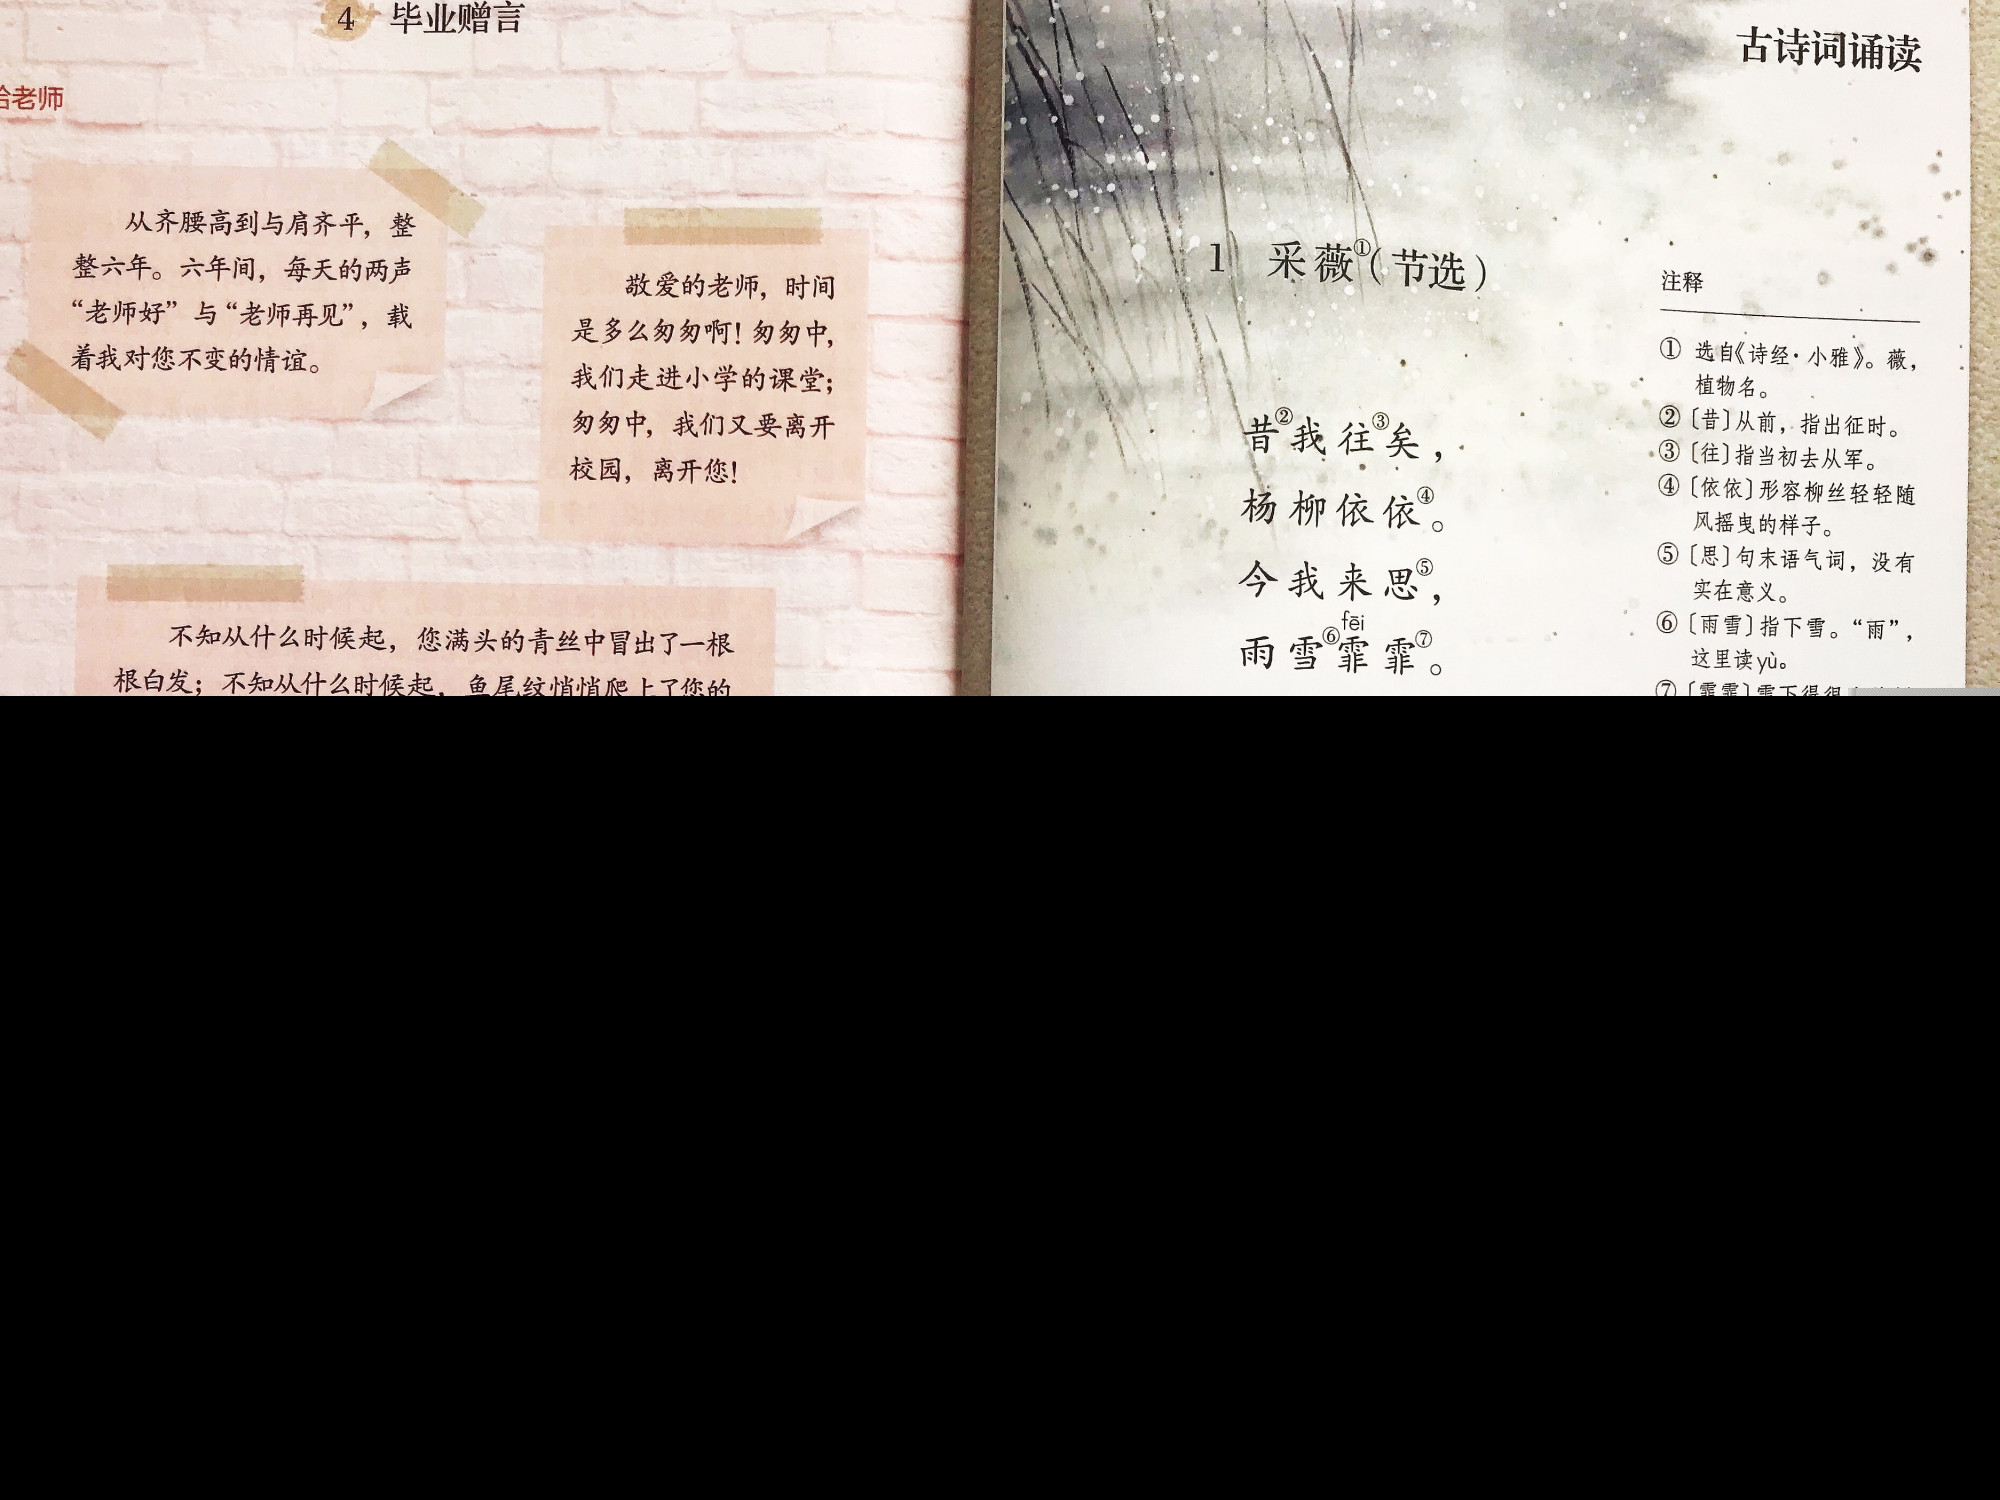 4 毕业赠言
给老师
从齐腰高到与肩齐平，整
整六年。六年间，每天的两声
“老师好”与“老师再见”，载
着我对您不变的情谊。
敬爱的老师，时间
是多么匆匆啊！匆匆中，
我们走进小学的课堂；
匆匆中，我们又要离开
校园，离开您！
不知从什么时候起，您满头的青丝中冒出了一根
根白发；不知从什么时候起，鱼尾纹悄悄爬上了您的
古诗词诵读
1 采薇①（节选）
昔②我往③矣，
杨柳依依④。
今我来思⑤，
fēi
雨雪⑥霏霏⑦。
注释
① 选自《诗经·小雅》。薇，
植物名。
②〔昔〕从前，指出征时。
③〔往〕指当初去从军。
④〔依依〕形容柳丝轻轻随
风摇曳的样子。
⑤〔思〕句末语气词，没有
实在意义。
⑥〔雨雪〕指下雪。“雨”，
这里读yù。
⑦〔霏霏〕雪下得很